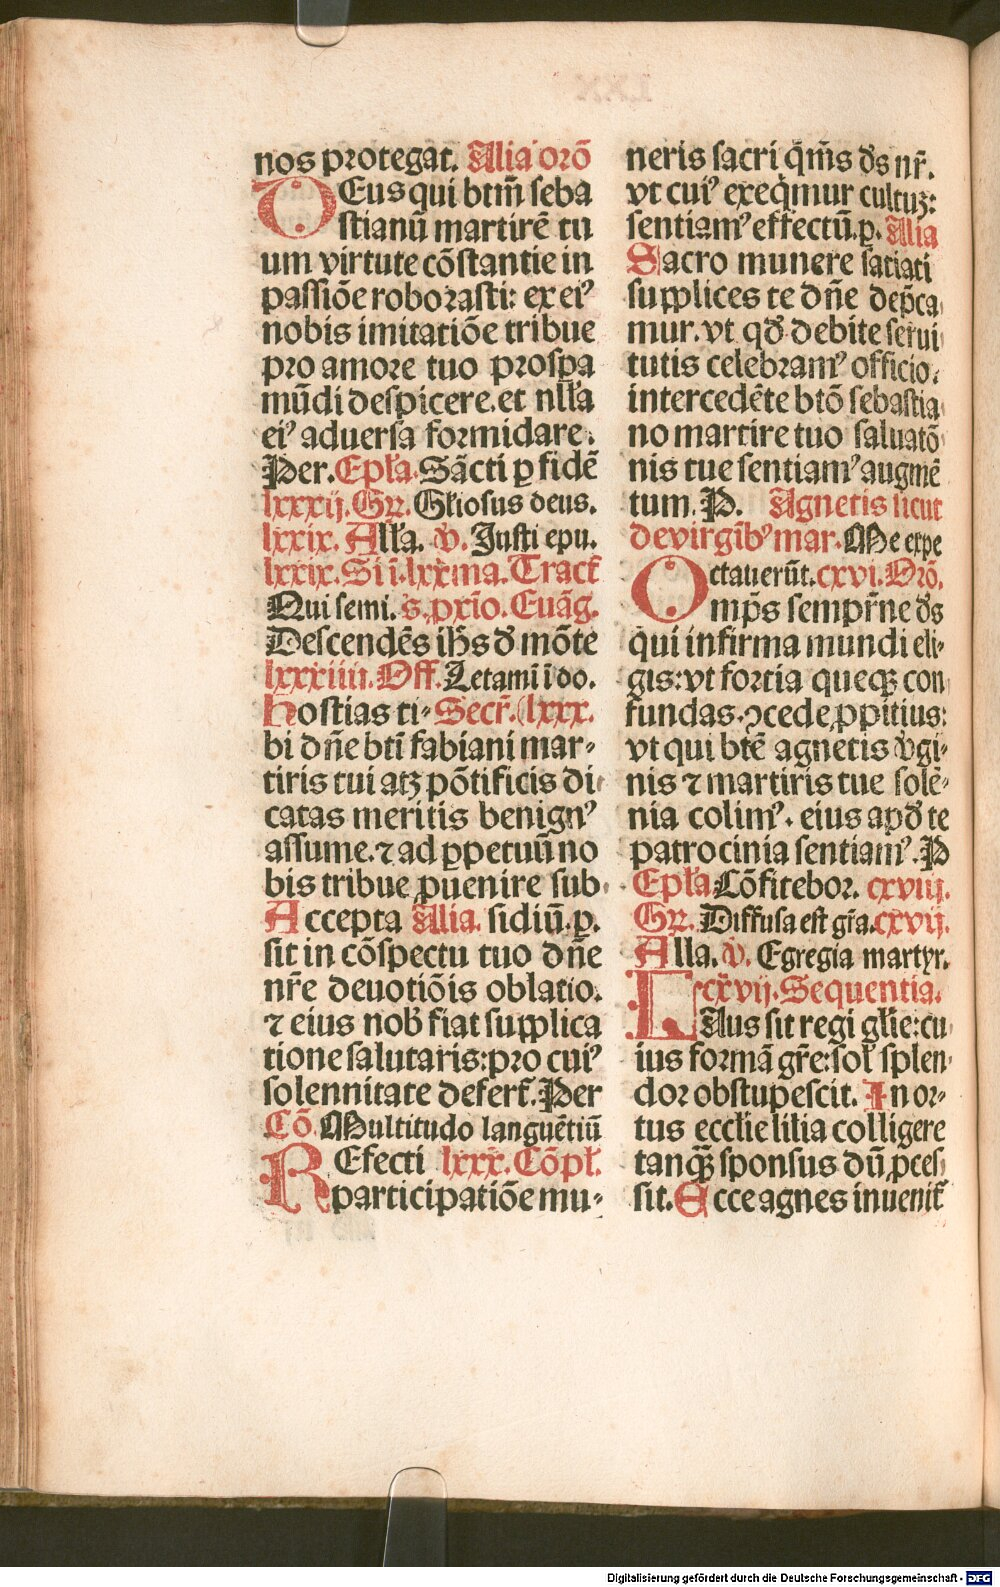 nos protegat. Alia orō
DEus qui btm̄ seba
stianū martirē tu
um virtute cōstantie in
passiōe roborasti: ex eiꝰ
nobis imitatiōe tribue
pro amore tuo prosꝑa
mūdi despicere. et nłła
eiꝰ aduersa formidare.
Per. Epła. Sācti ꝑ fidē
lxxxij. Gr̄. Głiosus deus.
lxxix. Ałła. v̄. Justi epu.
lxxix. Si ī. lxxma. Tract̄
Qui semi. s. ꝓxīo. Euāg.
Descendēs ih̄s ð mōte
lxxxiiii. Off. Letamī ī do.
Hostias ti- Secr̄. (lxxx.
bi dn̄e btī fabiani mar-
tiris tui atqꝫ pōtificis di
catas meritis benignꝰ
assume. ⁊ ad ꝑpetuū no
bis tribue ꝓuenire sub-
Accepta Alia. sidiū. ꝑ.
sit in cōspectu tuo dn̄e
nr̄e deuotiōis oblatio.
⁊ eius nob̄ fiat supplica
tione salutaris: pro cuiꝰ
solennitate defert̄. Per
Cō. Multitudo languētiū
REfecti lxxx. Cōpł.
participatiōe mu-
neris sacri q̄m̄s ðs nr̄.
vt cuiꝰ exeq̄mur cultuꝫ:
sentiamꝰ effectū. ꝑ. Alia
Sacro munere satiati
supplices te dn̄e dep̄ca
mur. vt qð debite serui
tutis celebramꝰ officio.
intercedēte btō sebastia
no martire tuo saluatō
nis tue sentiamꝰ augmē
tum. P. Agnetis sicut
de virgīb̄ꝰ mar. Me expe
ctauerūt. cxvi. Orō.
Omp̄s sempr̄ne ðs
qui infirma mundi eli-
gis: vt fortia queqꝫ con
fundas. ꝯcede ꝓpitius:
vt qui btē agnetis v̄gi-
nis ⁊ martiris tue solē-
nia colimꝰ. eius apð te
patrocinia sentiamꝰ. P
Epła. Cōfitebor. cxviij.
Gr̄. Diffusa est gr̄a. cxvij.
Alla. v̄. Egregia martyr.
cxvij. Sequentia.
LAus sit regi głie: cu
ius formā gr̄e: soł splen-
dor obstupescit. In or-
tus ecclie lilia colligere
tanqꝫ̄ sponsus dū ꝓces
sit. Ecce agnes inuenit̄
Digitalisierung gefördert durch die Deutsche Forschungsgemeinschaft - DFG